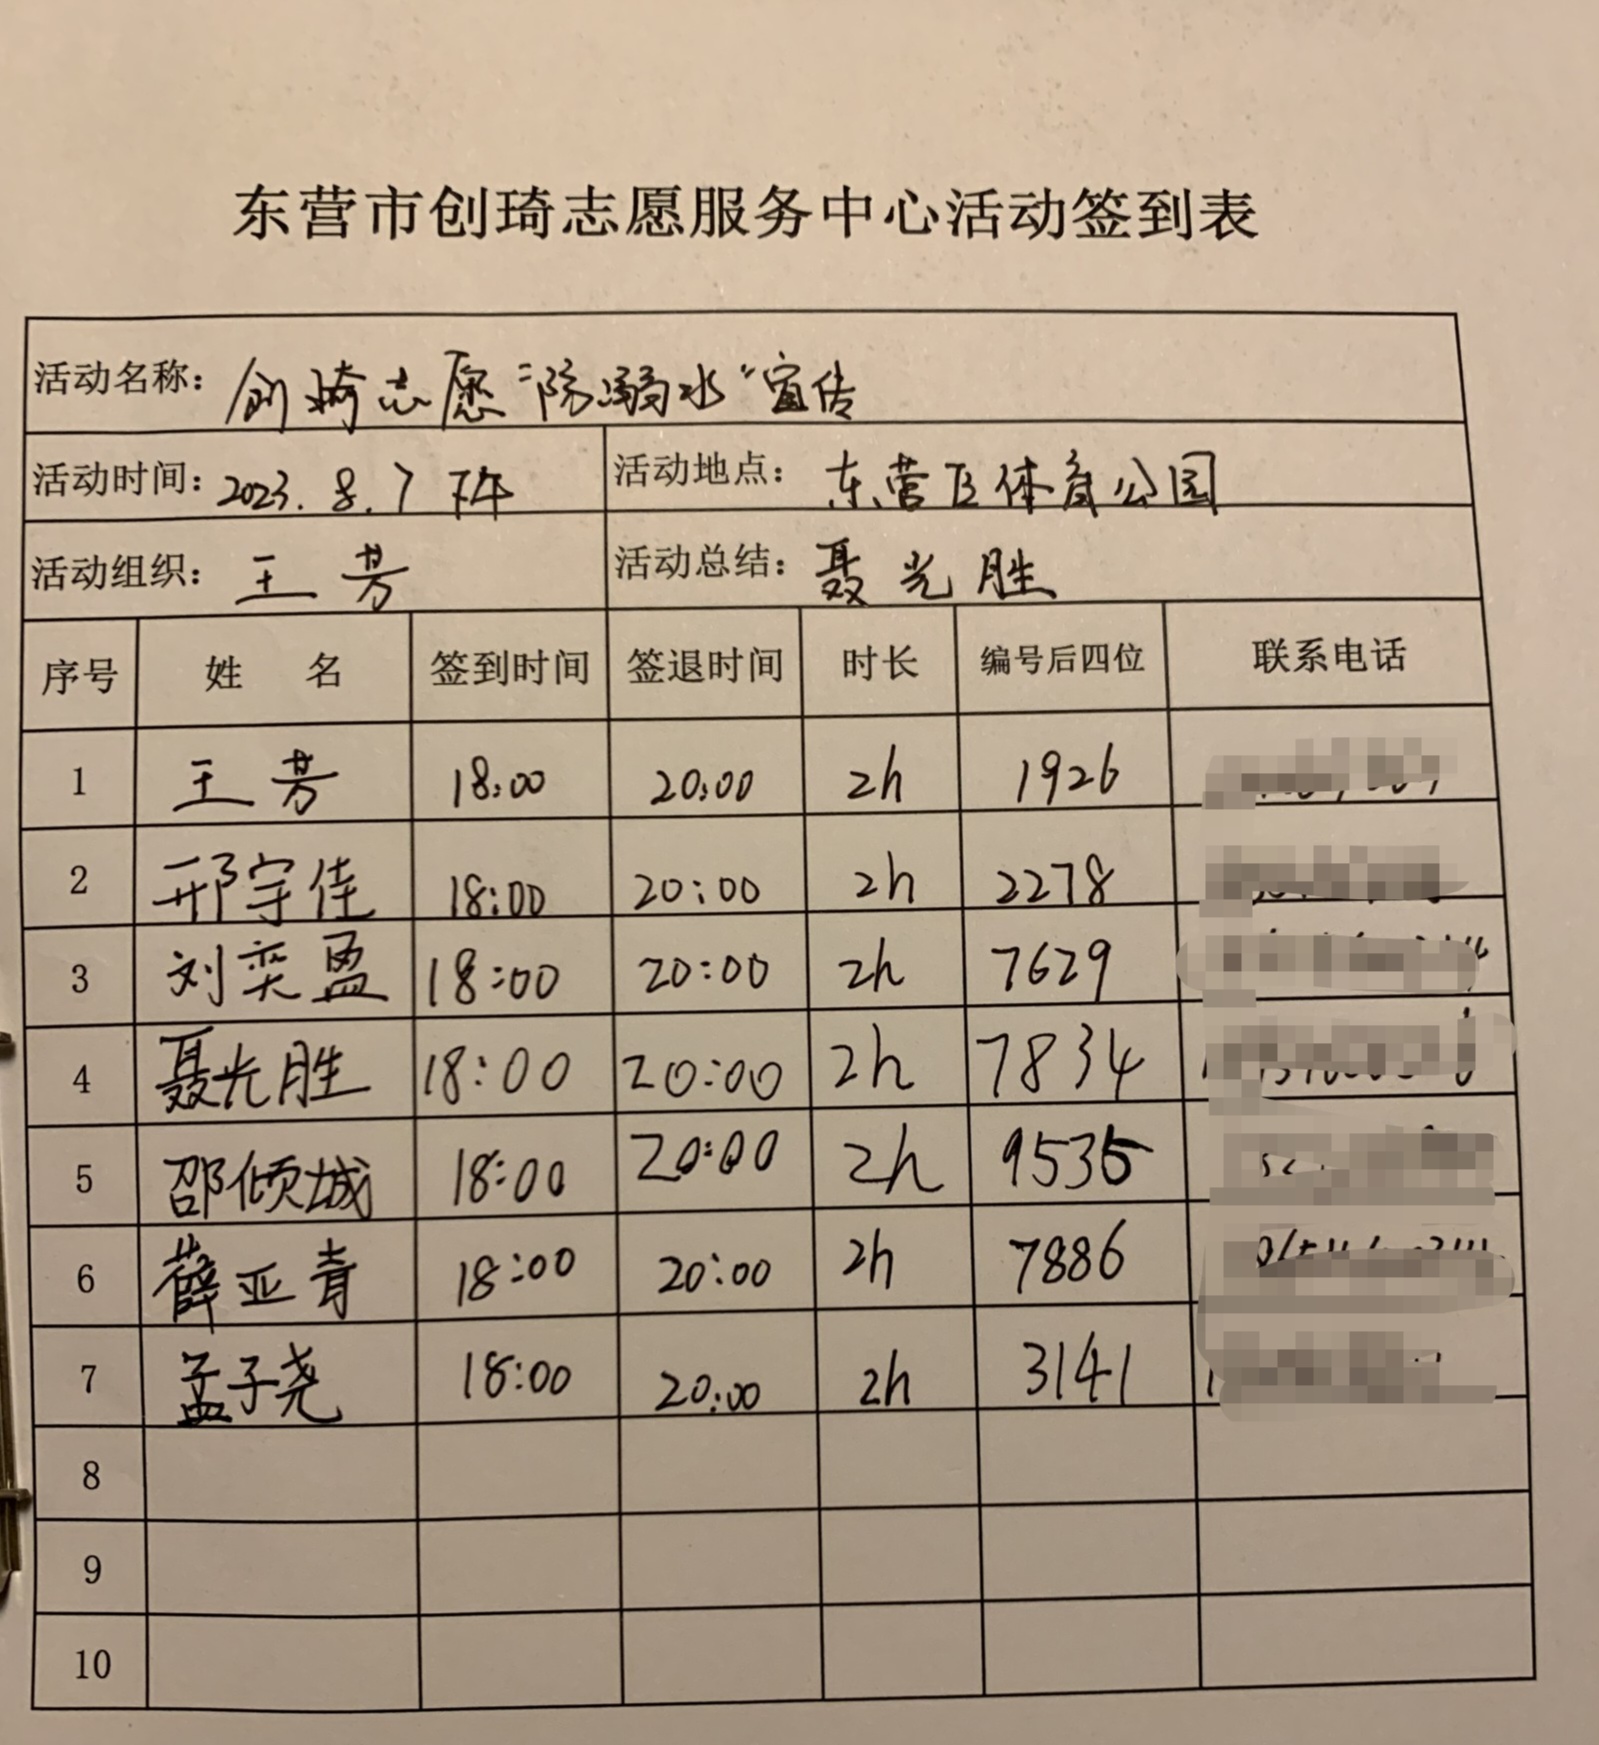 东营市创琦志愿服务中心活动签到表
活动名称: 创琦志愿"防溺水"宣传
活动时间: 2023.8.7 下午 活动地点: 东营区体育公园
活动组织: 王芳 活动总结: 聂光胜
序号 姓 名 签到时间 签退时间 时长 编号后四位 联系电话
1 王芳 18:00 20:00 2h 1926
2 邢宇佳 18:00 20:00 2h 2278
3 刘奕盈 18:00 20:00 2h 7629
4 聂光胜 18:00 20:00 2h 7834
5 邵倾城 18:00 20:00 2h 9535
6 薛亚青 18:00 20:00 2h 7886
7 孟子尧 18:00 20:00 2h 3141
8
9
10